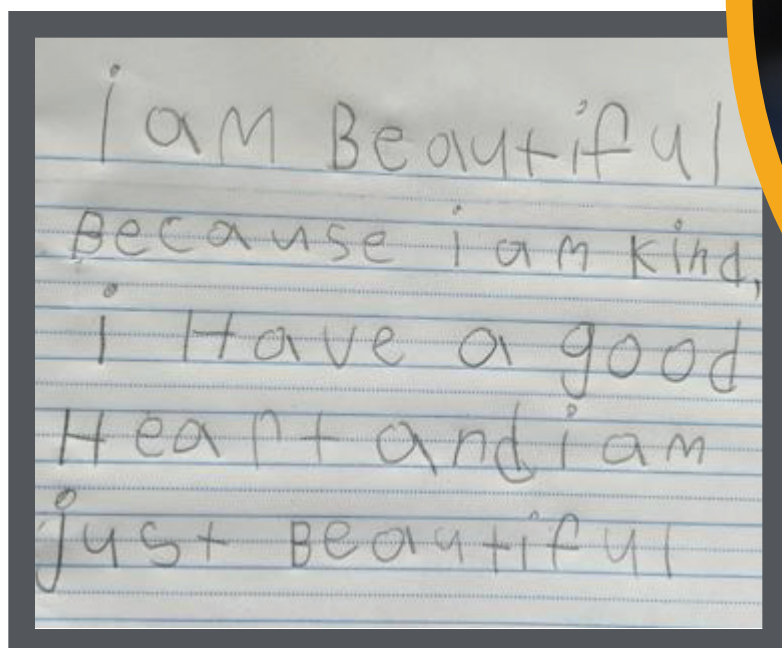 i am Beautiful
Because i am kind,
i Have a good
Heart and i am
just Beautiful